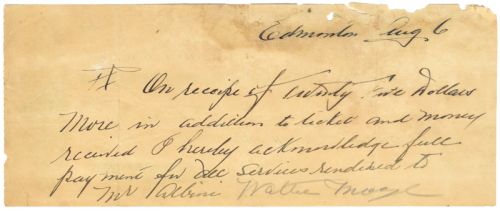 Edmonton Aug 6
On receipt of twenty five Dollars
More in addition to ticket and money
received I hereby acknowledge full
payment for all services rendered to
Mr Albini Walter